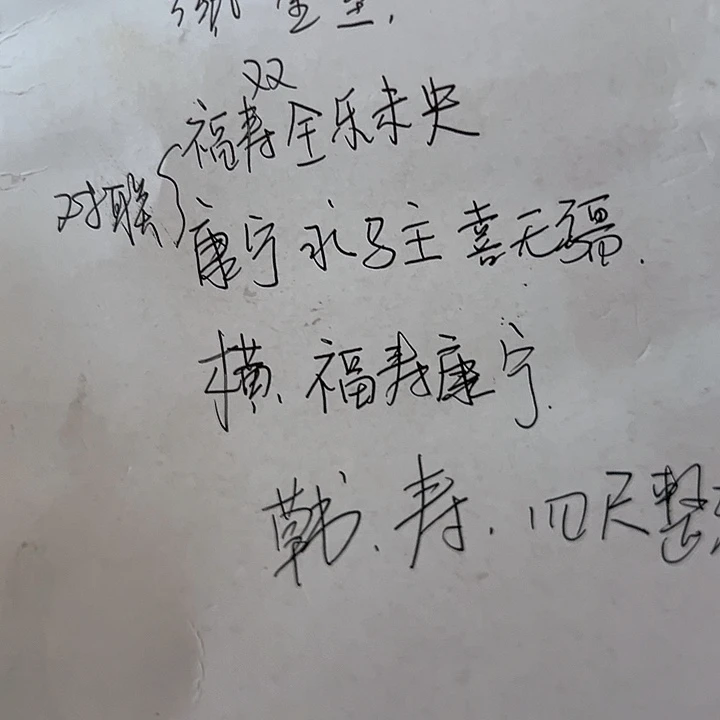 福寿双全乐未央
对联
康宁永驻喜无疆.
横、福寿康宁.
草书、寿、四尺整